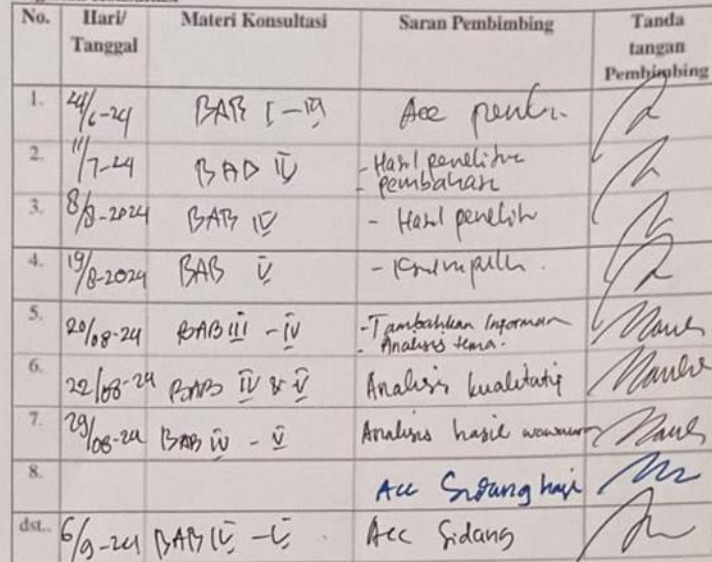 No. Hari/ Tanggal Materi Konsultasi Saran Pembimbing Tanda tangan Pembimbing
1. 24/6-24 BAB I - III Acc
2. 11/7-24 BAB IV - Hasil penelitian
- pembahasan
3. 8/8-2024 BAB IV - Hasil
4. 19/8-2024 BAB V
5. 20/08-24 BAB III - IV - Tambahkan Informan
- Analisis tema.
6. 22/08-24 BAB IV & V Analisis kualitatif
7. 29/08-24 BAB IV - V Analisis hasil
8. Acc Sidang hasil
dst.. 6/9-24 BAB IV - V Acc Sidang